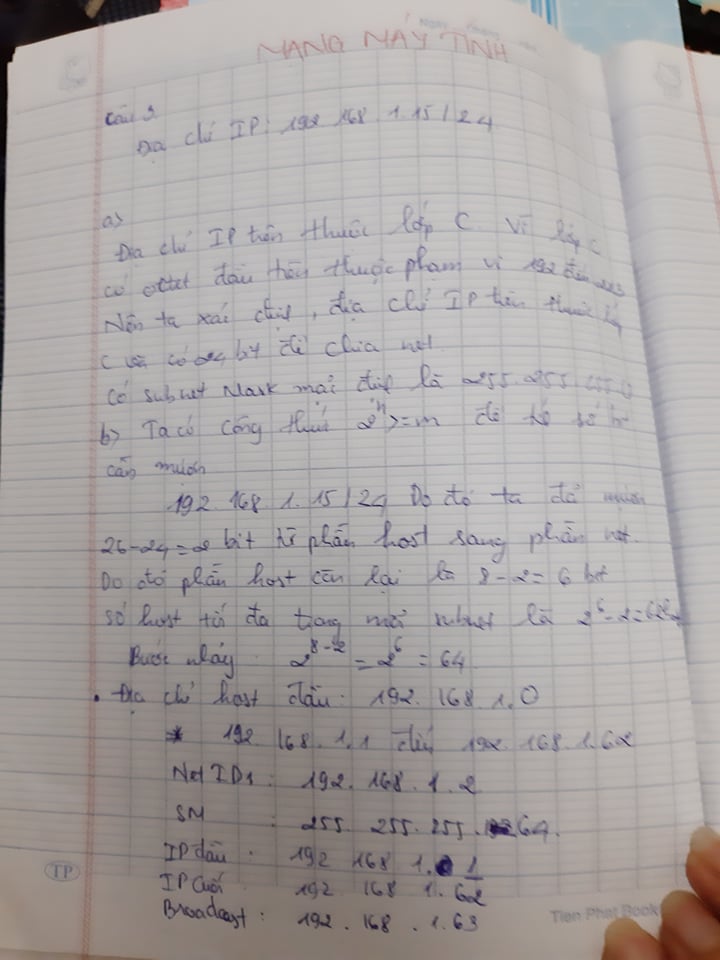 MẠNG MÁY TÍNH
Câu 3
Địa chỉ IP: 192 168 1.15/24
a>
Địa chỉ IP trên thuộc lớp C. Vì lớp C
có octet đầu tiên thuộc phạm vi 192 đến 223
Nên ta xác định, địa chỉ IP trên thuộc lớp
C và có 24 bit để chia net.
Có subnet Mask mặc định là 255.255.255.0
b> Ta có công thức 2^n >= m để số bit
cần mượn
192.168.1.15/24 Do đó ta đã mượn
26-24=2 bit từ phần host sang phần net.
Do đó phần host còn lại là 8-2=6 bit
số host tối đa trong mỗi subnet là 2^6-2=62
Bước nhảy: 2^8-2 = 2^6 = 64
. Địa chỉ host đầu: 192.168.1.0
* 192.168.1.1 đến 192.168.1.62
Net ID1: 192.168.1.2
SM : 255.255.255.64.
IP đầu: 192 168 1.1
IP Cuối: 192 168 1.62
Broadcast: 192.168.1.63
TP
Tien Phat Book